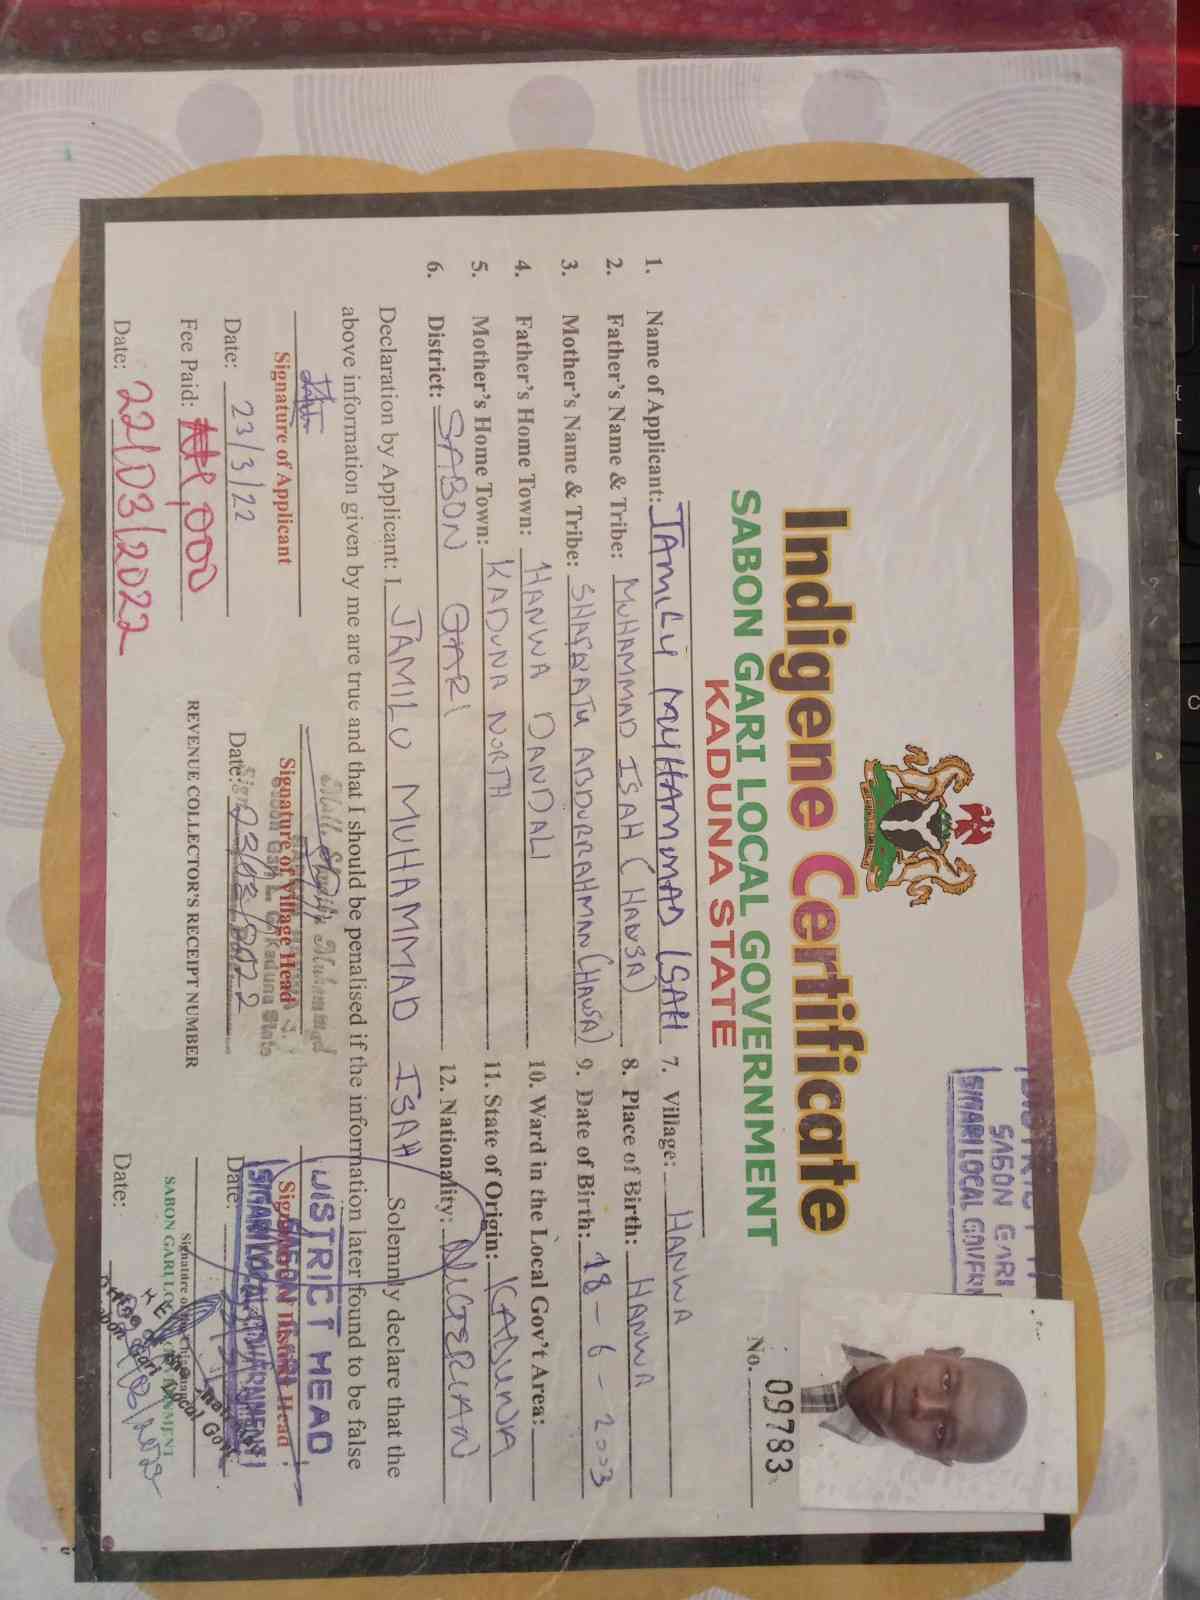 DISTRICT H
SABON GARI
S/GARI LOCAL GOVERN
Indigene Certificate
SABON GARI LOCAL GOVERNMENT
KADUNA STATE
No. 09783
1. Name of Applicant: JAMILU MUHAMMAD ISAH
2. Father's Name & Tribe: MUHAMMAD ISAH (HAUSA)
3. Mother's Name & Tribe: SHAFAATU ABDURRAHMAN (HAUSA)
4. Father's Home Town: HANWA DANDALI
5. Mother's Home Town: KADUNA NORTH
6. District: SABON GARI
7. Village: HANWA
8. Place of Birth: HANWA
9. Date of Birth: 18-6-2003
10. Ward in the Local Gov't Area:
11. State of Origin: KADUNA
12. Nationality: NIGERIAN
Declaration by Applicant: I JAMILU MUHAMMAD ISAH Solemnly declare that the
above information given by me are true and that I should be penalised if the information later found to be false
Signature of Applicant
Date: 23/3/22
Fee Paid: ₦1,000
Date: 22/03/2022
Muhammad
Signature of Village Head
Sabon Gari L. G. Kaduna State
Date: 23/03/2022
REVENUE COLLECTOR'S RECEIPT NUMBER
DISTRICT HEAD
Signature of District Head
SABON GARI
S/GARI LOCAL GOVERNMENT
Date:
Signature of the Chairman
SABON GARI LOCAL GOVERNMENT
Date: